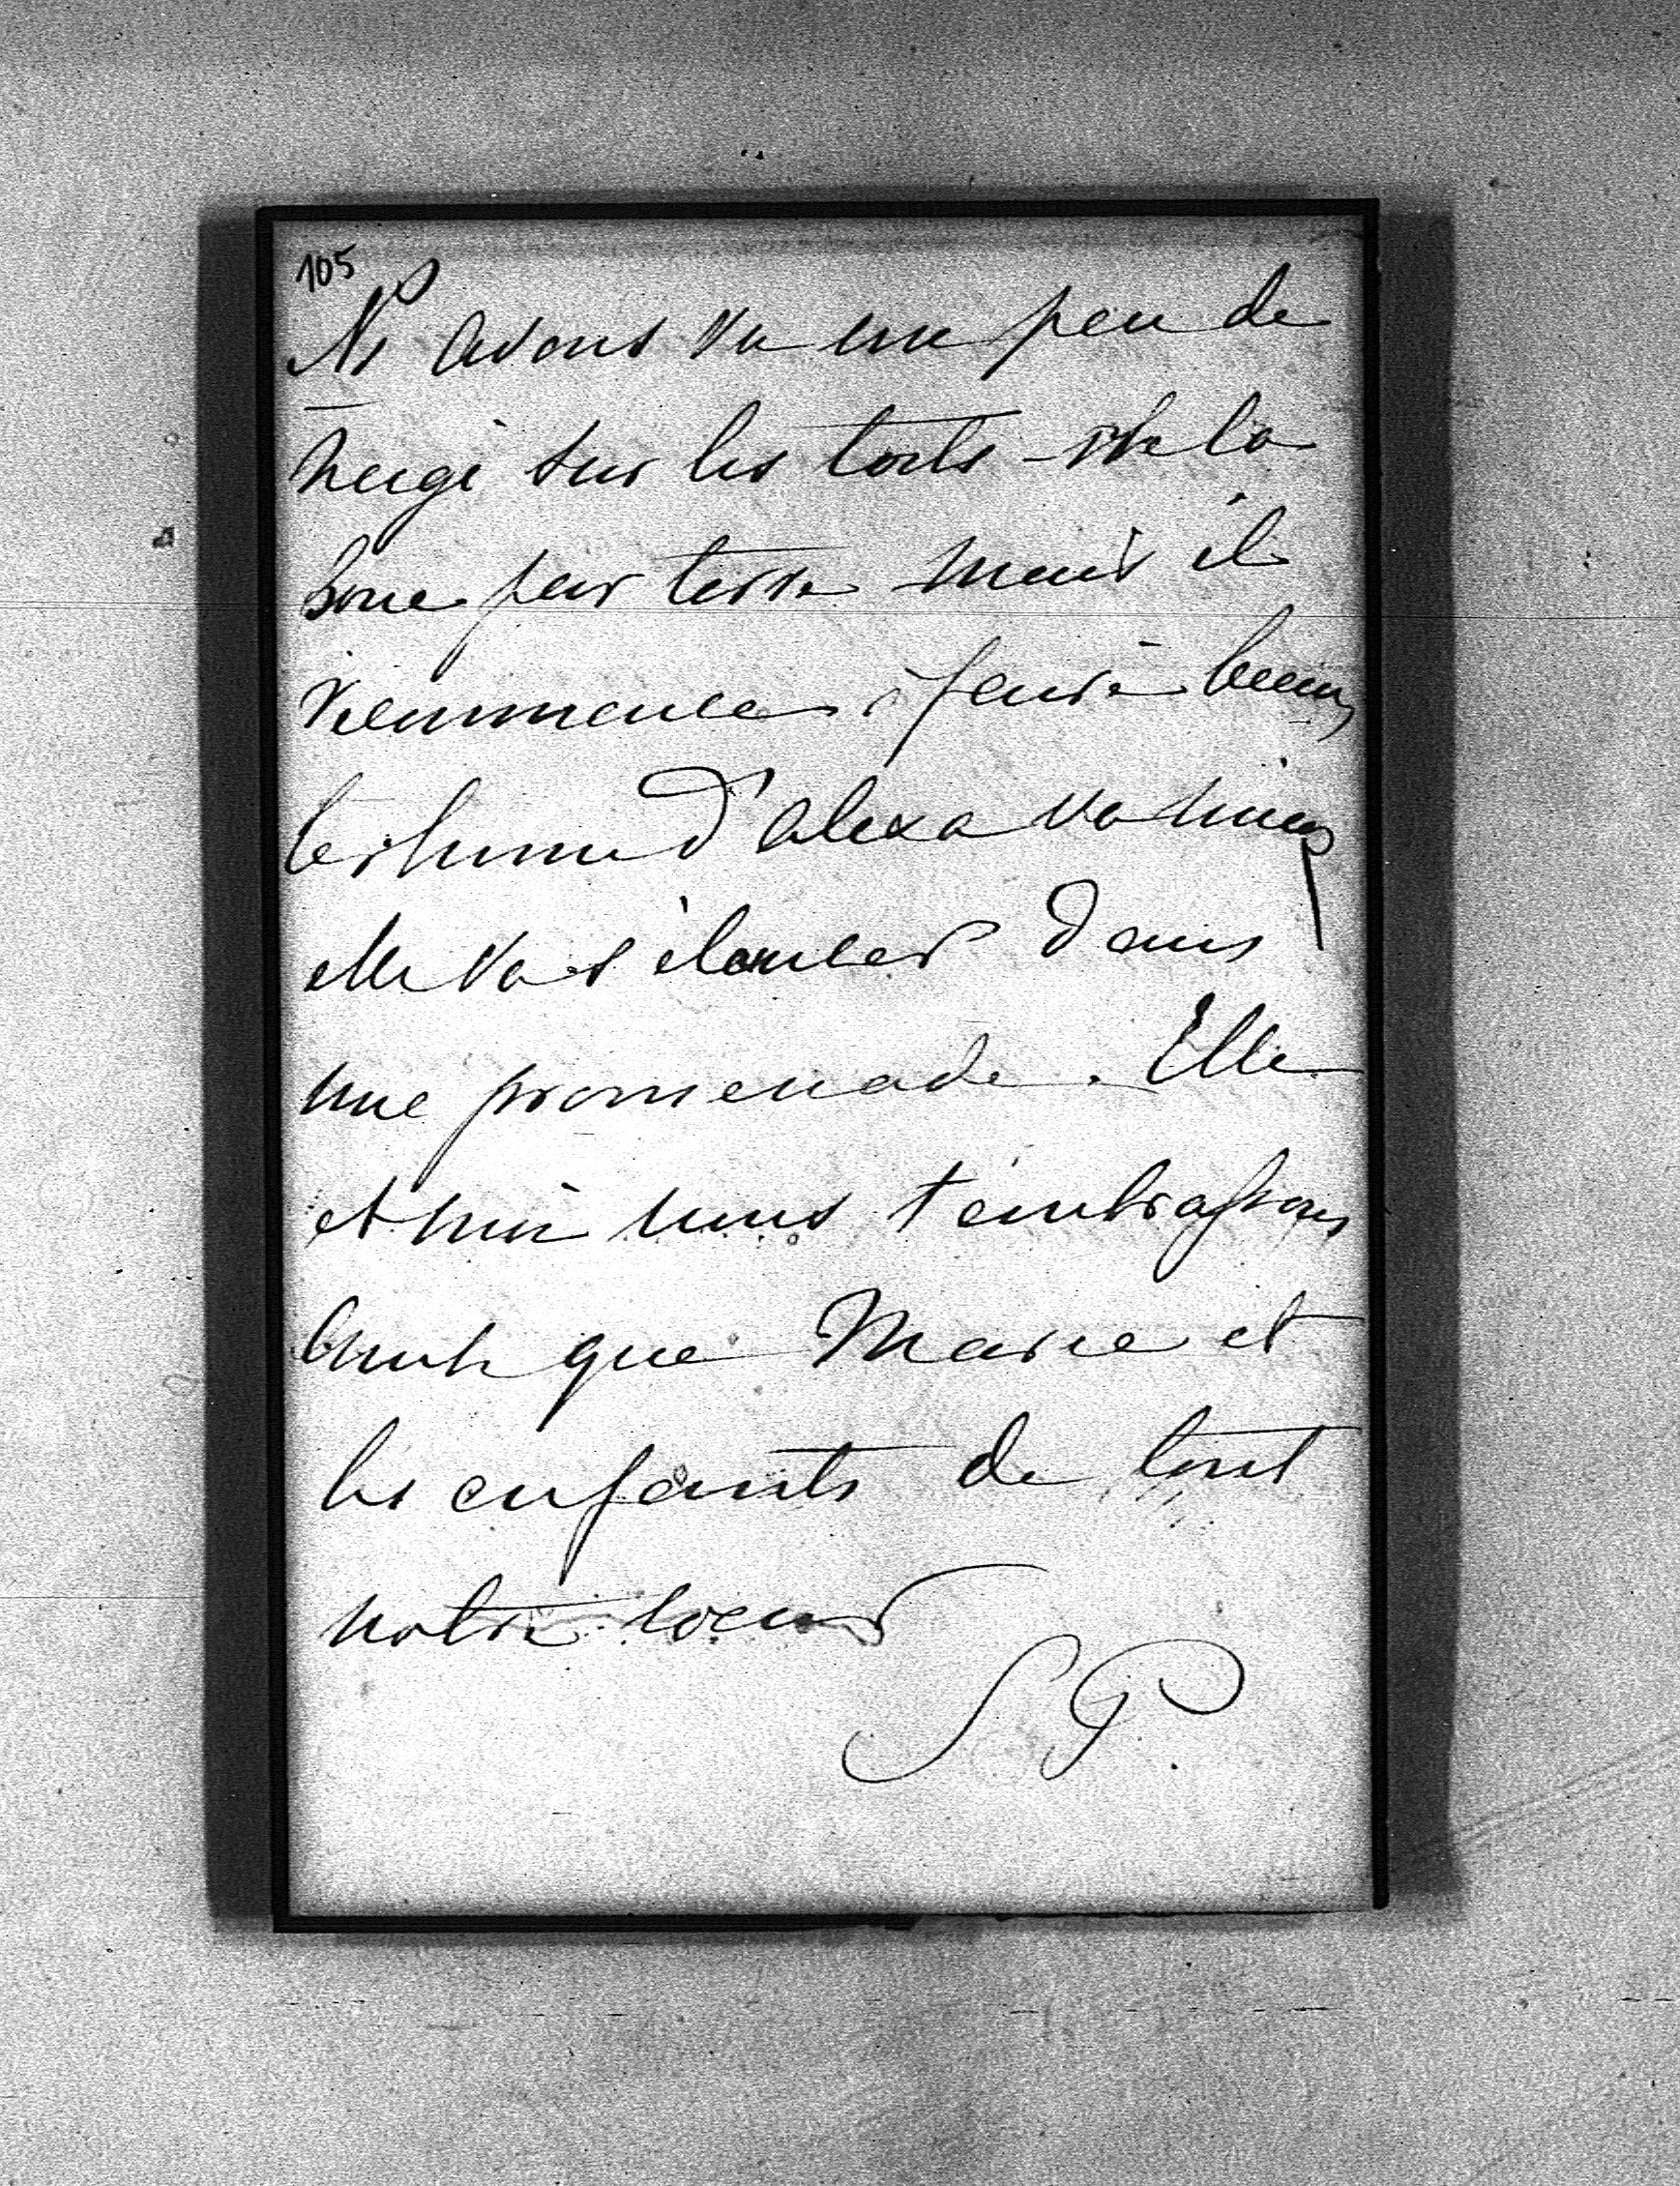 105
Ns avons vu un peu de
neige sur les toits – et de la
boue par terre mais il
recommence à faire beau
le rhume d'Alexa va mieux
elle va s'élancer dans
une promenade. Elle
et moi nous t'embrassons
ainsi que Marie et
les enfants de tout
notre coeur
S. G.